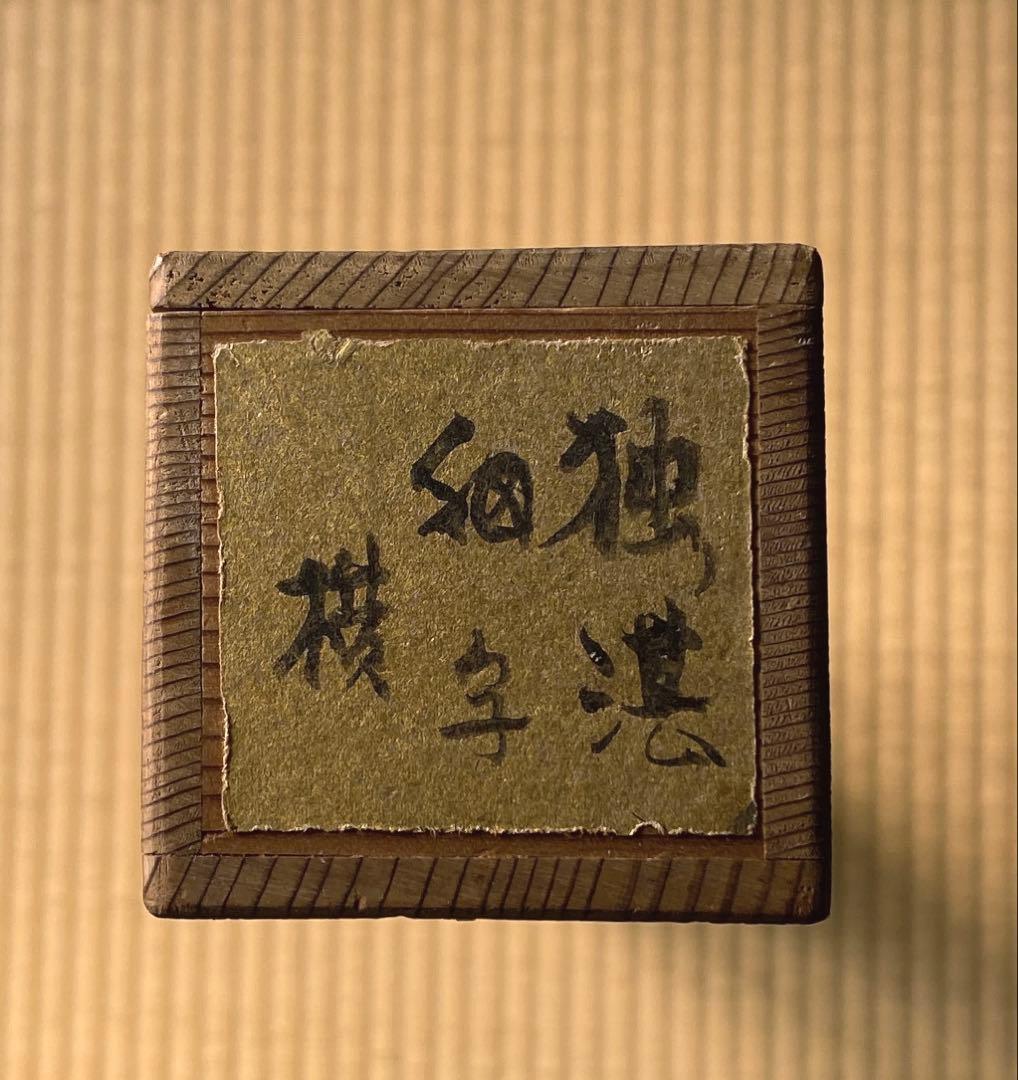 独湛
細字
横